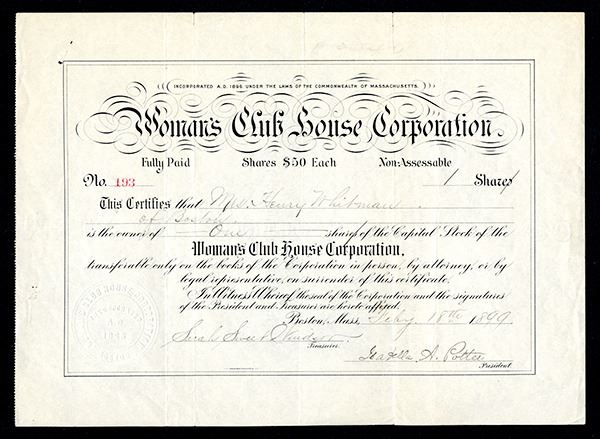 INCORPORATED A.D. 1898 UNDER THE LAWS OF THE COMMONWEALTH OF MASSACHUSETTS.
Woman's Club House Corporation.
Fully Paid Shares $50 Each Non-Assessable
No. 193 1 Share
This Certifies that Mrs. Henry Whitman
of Boston
is the owner of One share of the Capital Stock of the
Woman's Club House Corporation.
transferable only on the books of the Corporation in person, by attorney, or by
legal representative, on surrender of this certificate.
In Witness Whereof the seal of the Corporation and the signatures
of the President and Treasurer are hereto affixed.
Boston, Mass. Feby. 18th 1899.
Sarah
Treasurer.
Isabella A. Potter
President.